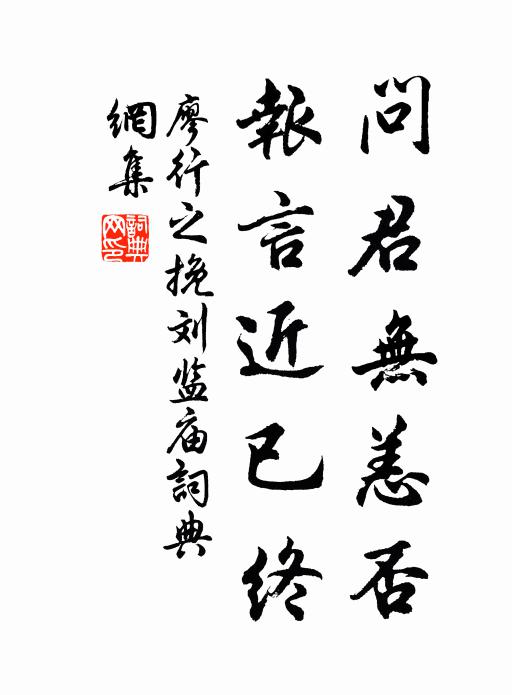 問君無恙否
報言近已終
廖行之挽刘监庙詞典
網集
詞典网印